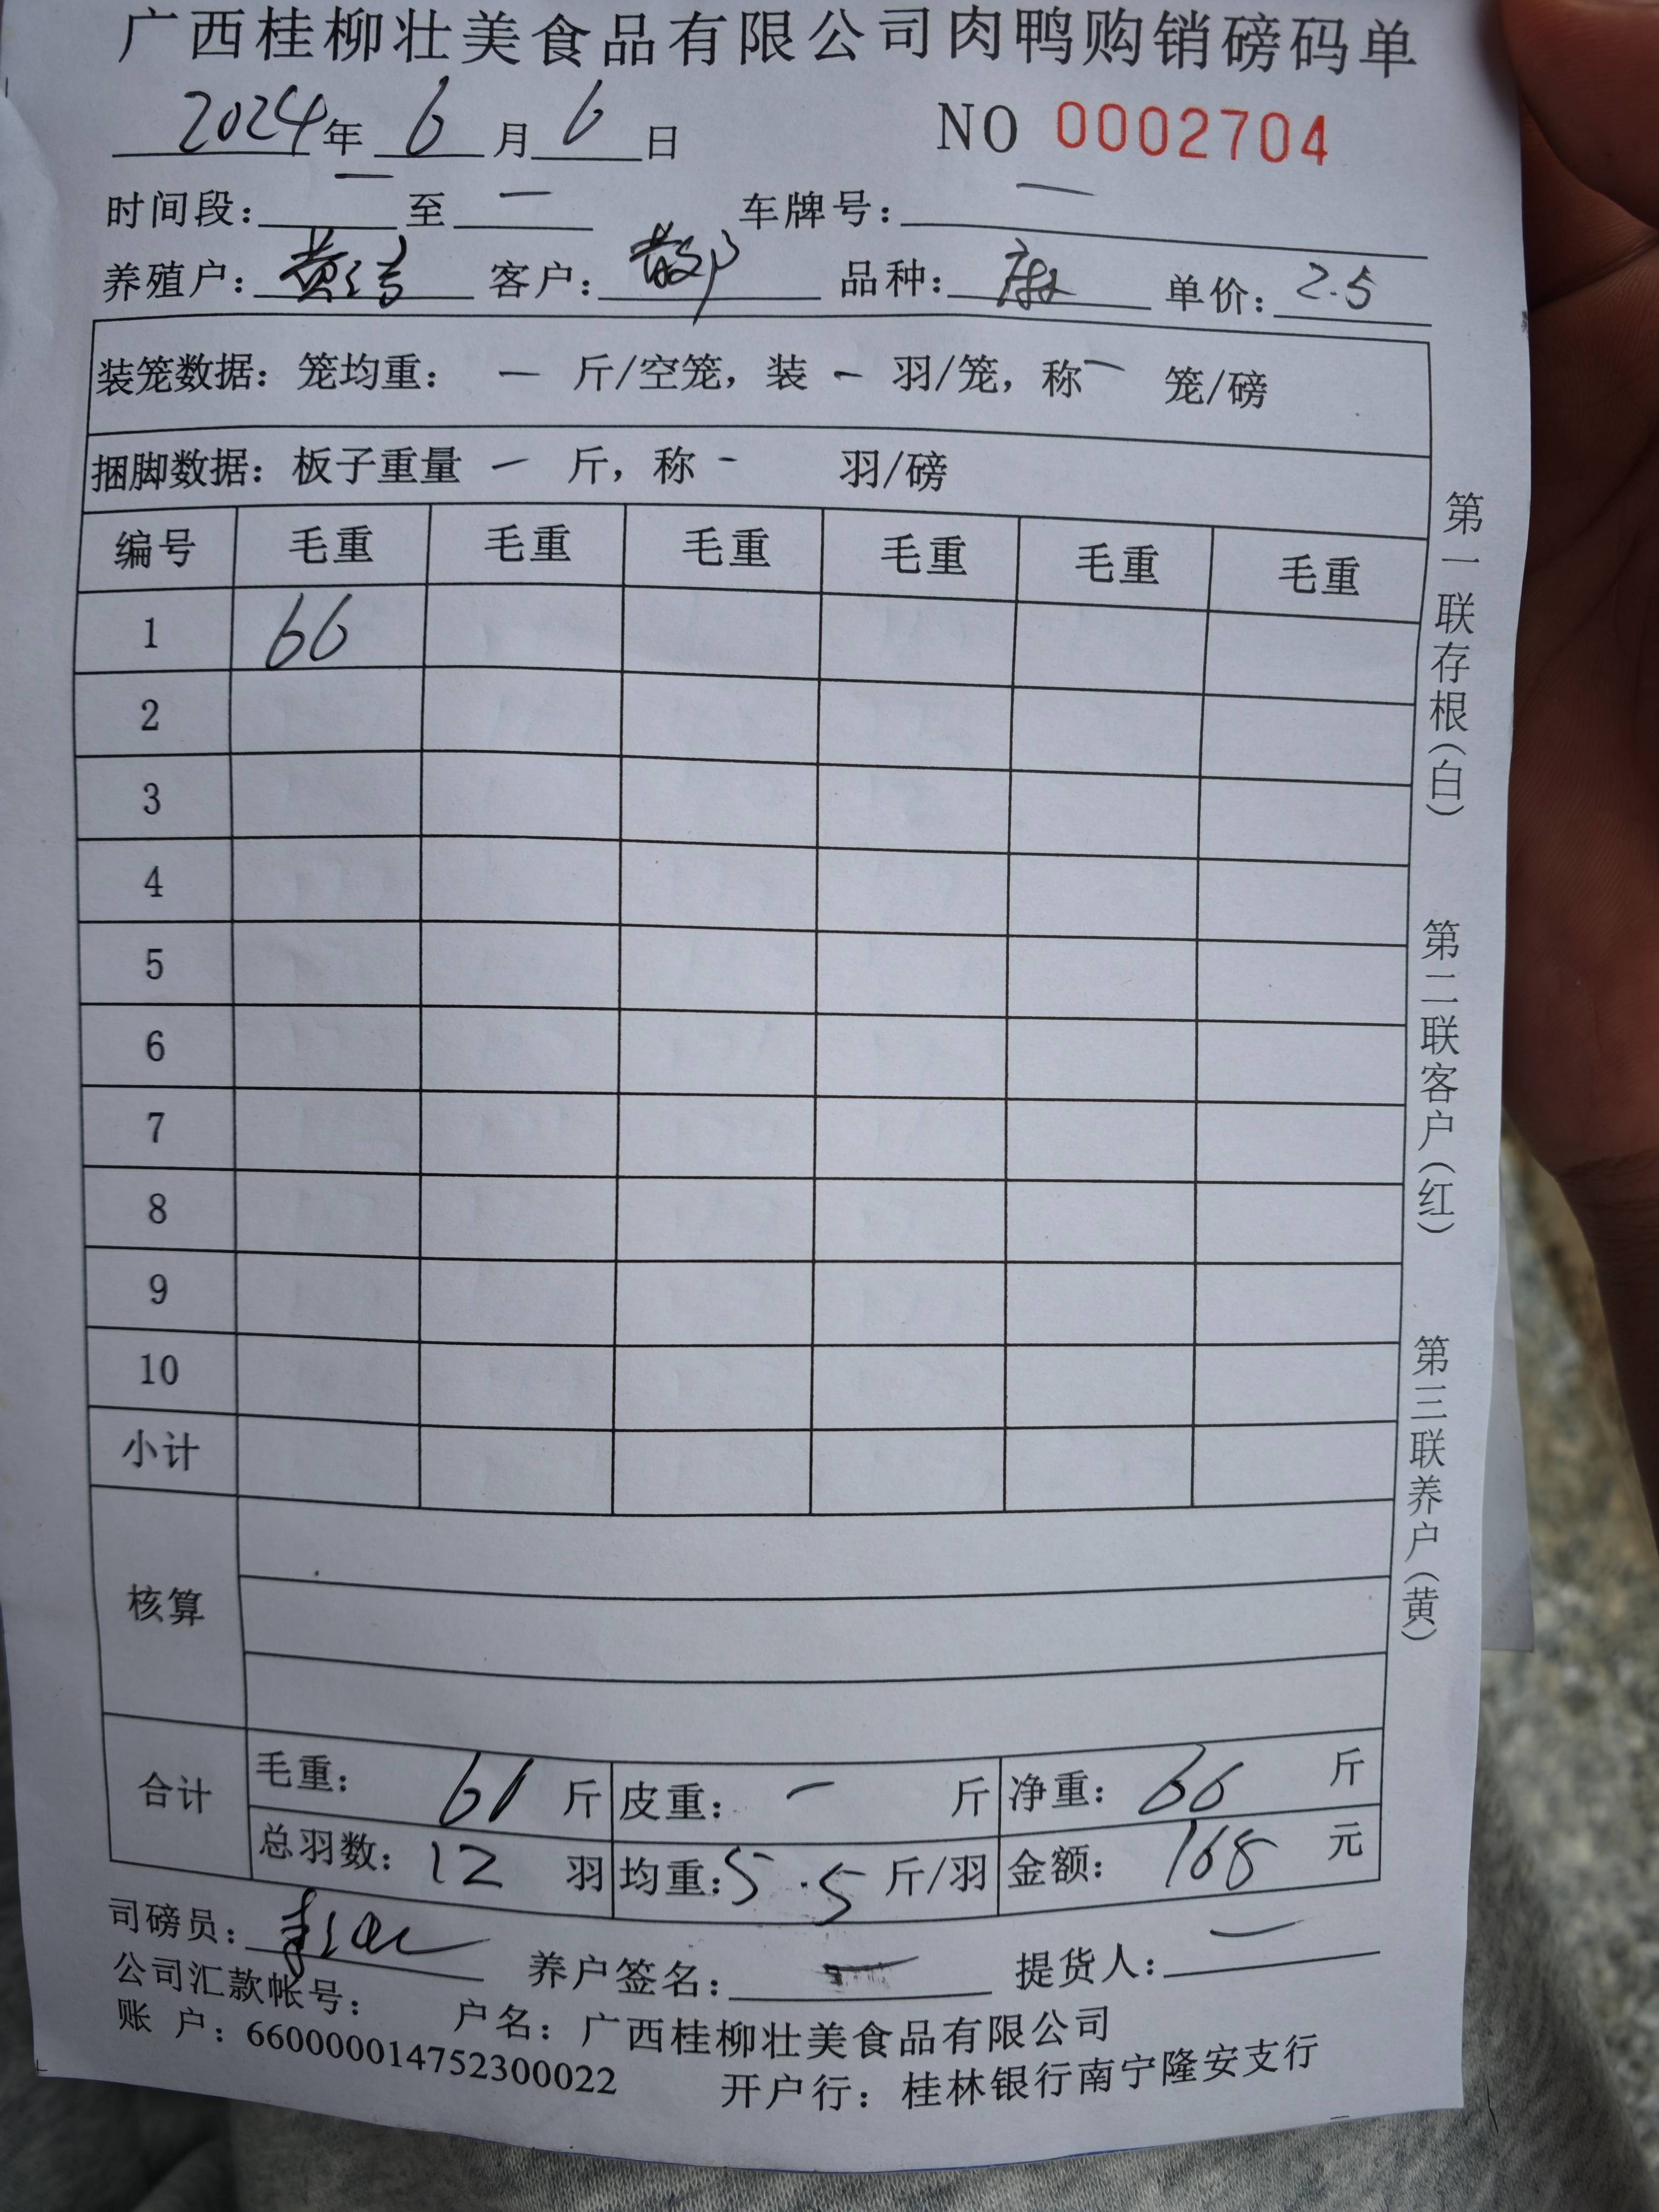 广西桂柳壮美食品有限公司肉鸭购销磅码单
2024年 6 月 6 日 NO 0002704
时间段: — 至 — 车牌号: —
养殖户: 黄 客户: 散户 品种: 单价: 2.5
装笼数据: 笼均重: — 斤/空笼, 装 - 羽/笼, 称 — 笼/磅
捆脚数据: 板子重量 — 斤, 称 - 羽/磅
编号 毛重 毛重 毛重 毛重 毛重 毛重
1 66
2
3
4
5
6
7
8
9
10
小计
核算
合计 毛重: 斤 皮重: — 斤 净重: 66 斤
总羽数: 12 羽 均重: 5.5 斤/羽 金额: 168 元
司磅员: 养户签名: — 提货人: —
公司汇款帐号: 户名: 广西桂柳壮美食品有限公司
账 户: 660000014752300022 开户行: 桂林银行南宁隆安支行
第一联存根(白)
第二联客户(红)
第三联养户(黄)